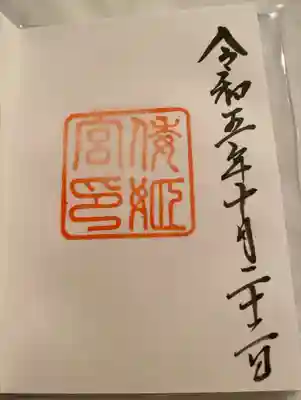 令和五年十月二十二日
倭姫
宮印